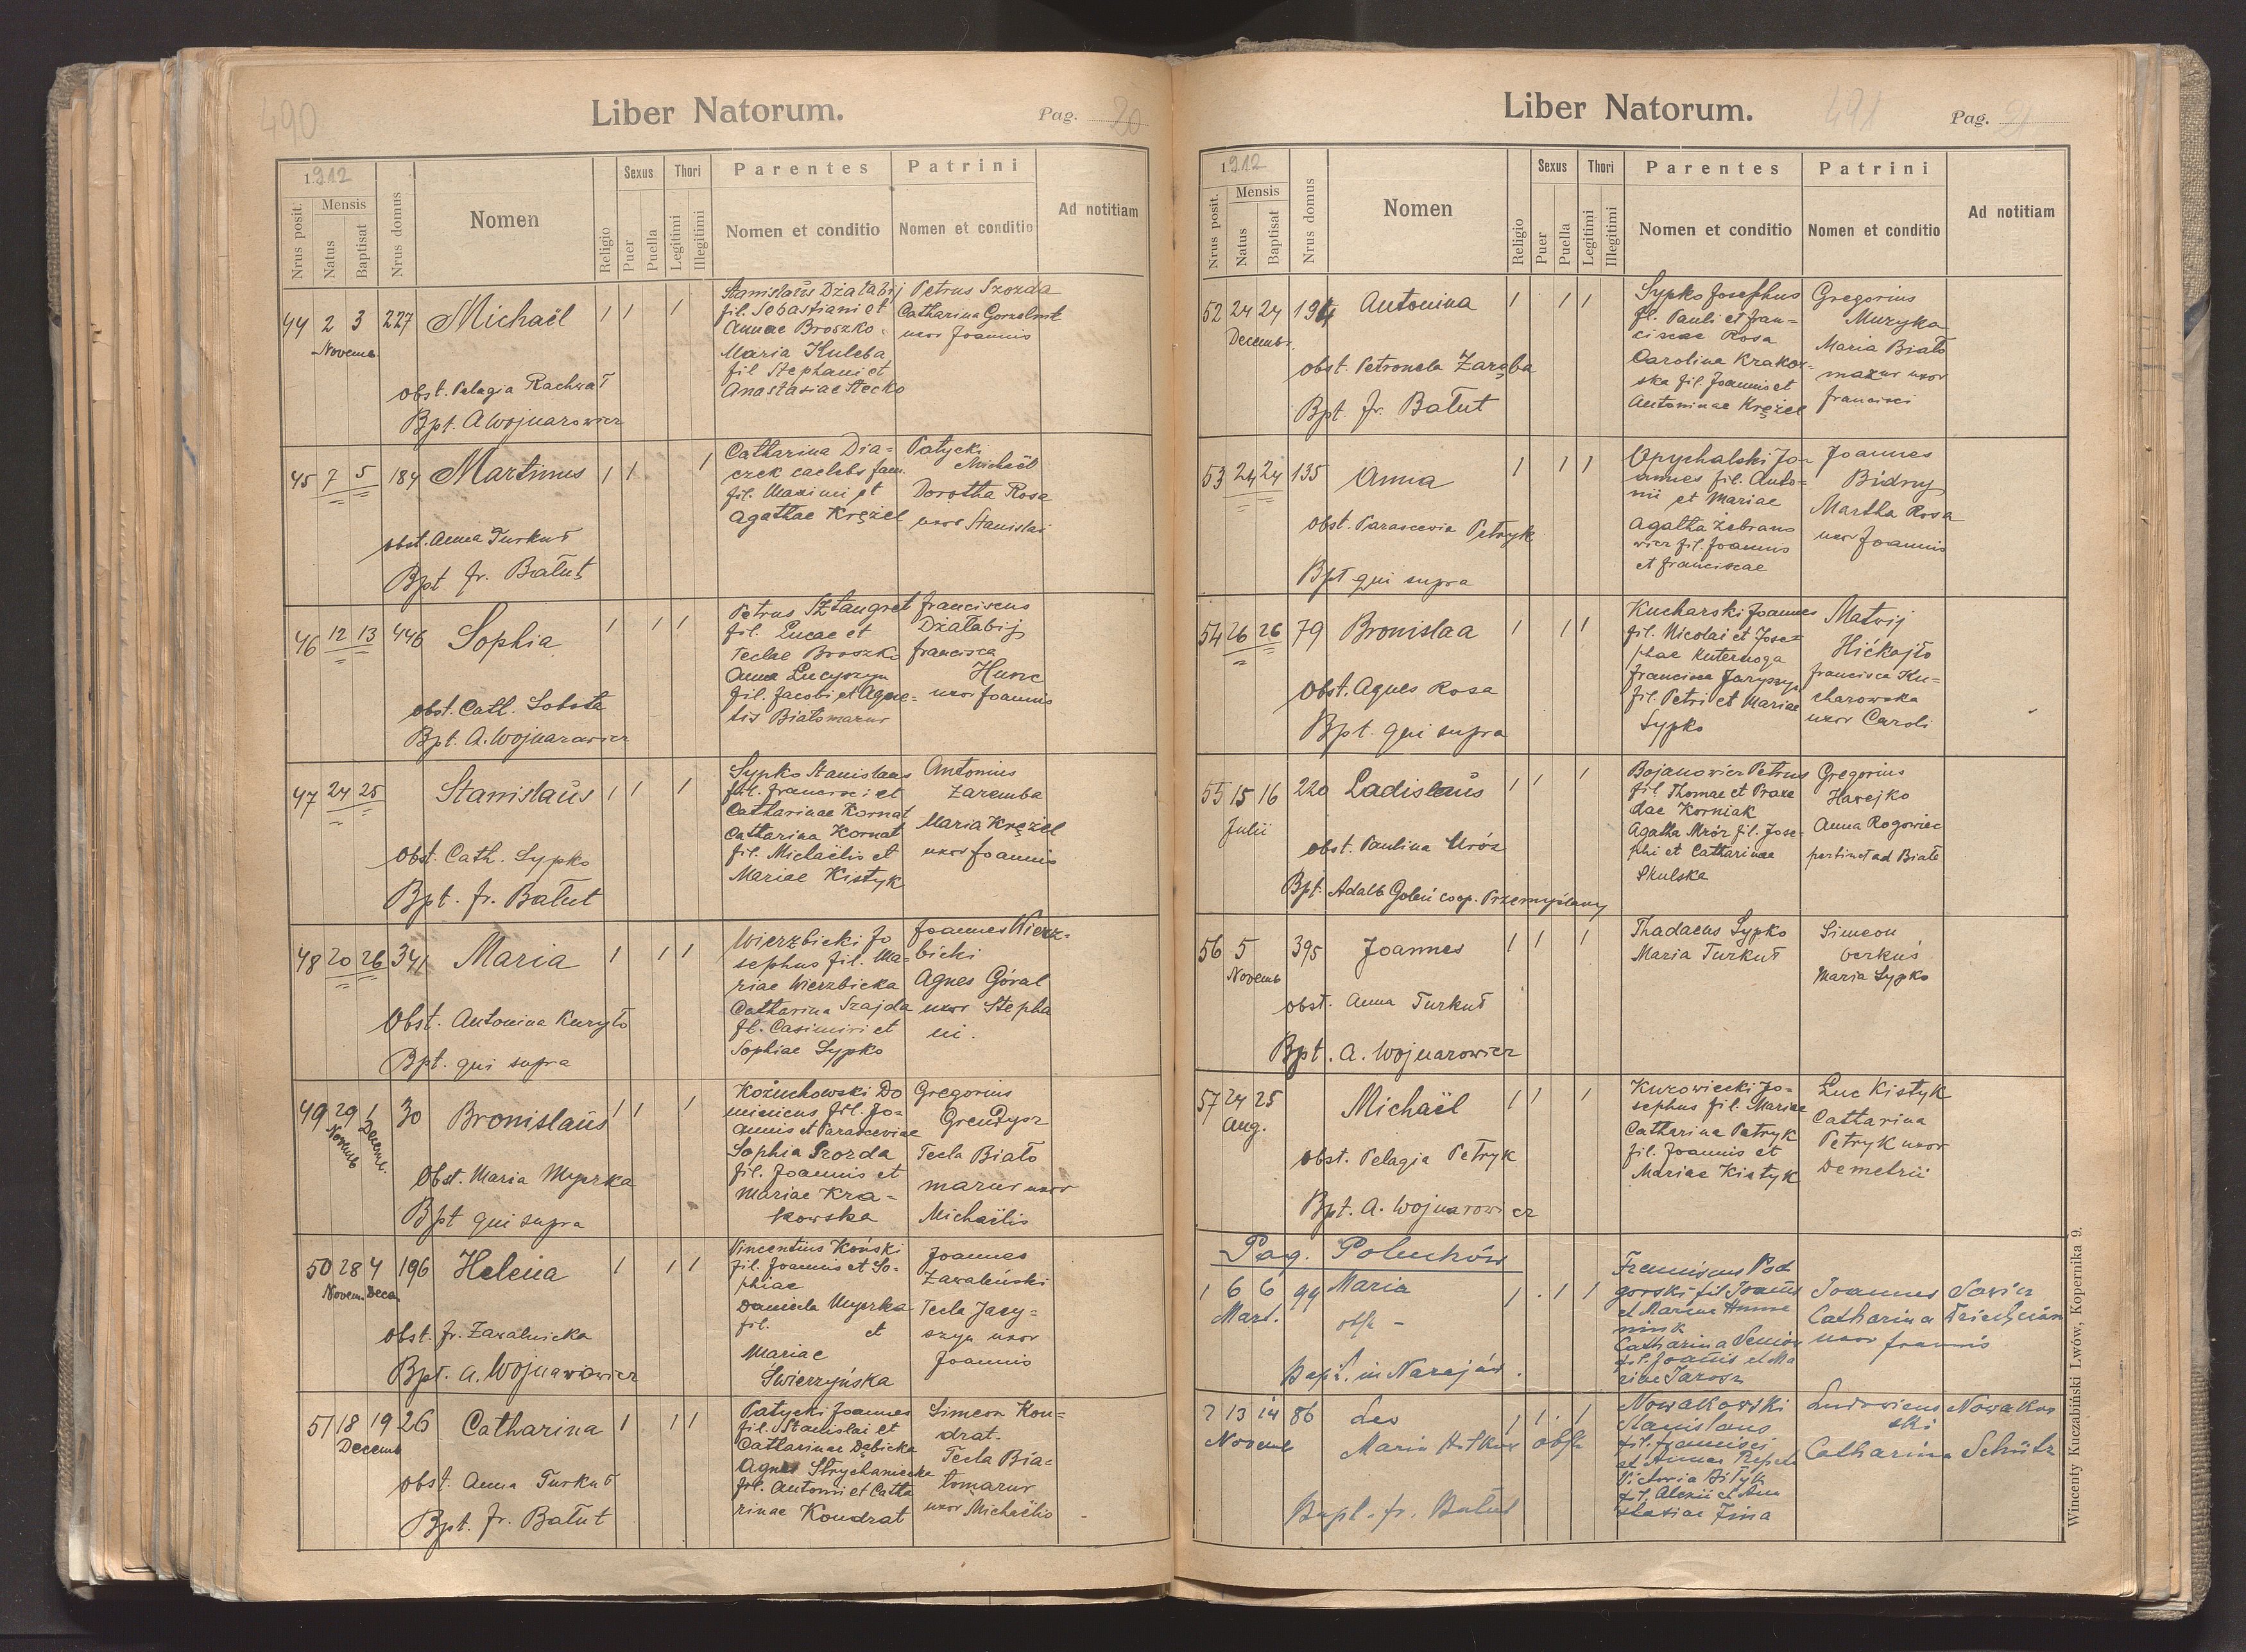 490
Liber Natorum.
Pag. 20
1912
Nrus posit.
Mensis
Natus
Baptisat
Nrus domus
Nomen
Religio
Sexus
Puer
Puella
Thori
Legitimi
Illegitimi
Parentes
Nomen et conditio
Patrini
Nomen et conditio
Ad notitiam
44 2 3 227 Michaël 1 1 1
Novemb
obst. Pelagia Rachwał
Bpt. A Wojnarowicz
Stanislaus Działabij
fil. Sebastiani et
Annae Broszko
Maria Kuleba
fil Stephani et
Anastasiae Stecko
Petrus Szozda
Catharina
uxor Joannis
45 7 5 184 Martinus 1 1 1
obst. Anna Turkuł
Bpt fr. Bałut
Catharina Dia=
czek caelebs fam.
fil. Maximi et
Agathae Krężel
Patycki
Michaël
Dorotha Rosa
uxor Stanislai
46 12 13 446 Sophia 1 1 1
obst. Cath. Sobota
Bpt. A. Wojnarowicz
Petrus Sztangret
fil. Lucae et
Teclae Broszko
Anna Lucyszyn
fil. Jacobi et Agne=
tis Białomazur
Franciscus
Działabij
Francisca
uxor Joannis
47 24 25 Stanislaus 1 1 1
Obst. Cath. Sypko
Bpt. fr. Bałut
Sypko Stanislaus
fil. Francisci et
Catharinae Kornat
Catharina Kornat
fil. Michaëlis et
Mariae Kistyk
Antonius
Zaremba
Maria Krężel
uxor Joannis
48 20 26 341 Maria 1 1 1
Obst. Antonina Kuryło
Bpt. qui supra
Wierzbicki Jo
sephus fil. Ma=
riae Wierzbicka
Catharina Szajda
fil. Casimiri et
Sophiae Sypko
Joannes Wierz=
bicki
Agnes Góral
uxor Stepha
ni.
49 29 1 30 Bronislaus 1 1 1
Novemb Decemb.
Obst. Maria Muzyka
Bpt qui supra
Kożuchowski Do
minicus fil. Jo=
annis et Parasceviae
Sophia Szozda
fil. Joannis et
Mariae Kra=
kowska
Gregorius
Grendysz
Tecla Biało
mazur uxor
Michaëlis
50 28 4 196 Helena 1 1 1
Novem. Dec.
Obst. Fr. Zawalnicka
Bpt. A. Wojnarowicz
Vincentius Koński
fil. Joannis et So=
phiae
Daniela Muzyka
fil. et
Mariae
Świerzyńska
Joannes
Zawaleński
Tecla Jacy=
szyn uxor
Joannis
51 18 19 26 Catharina 1 1 1
Decemb
obst. Anna Turkuł
Bpt. fr. Bałut
Patycki Joannes
fil. Stanislai et
Catharinae Dębicka
Agnes Strychaniecka
fil. Antonii et Catha
rinae Kondrat
Simeon Kon=
drat.
Tecla Bia=
łomazur
uxor Michaëlis
Liber Natorum.
491
Pag. 21
1912
Nrus posit.
Mensis
Natus
Baptisat
Nrus domus
Nomen
Religio
Sexus
Puer
Puella
Thori
Legitimi
Illegitimi
Parentes
Nomen et conditio
Patrini
Nomen et conditio
Ad notitiam
52 24 24 194 Antonina 1 1 1
Decemb.
obst. Petronela Zaręba
Bpt. fr. Bałut
Sypko Josephus
fil. Pauli et Fran=
ciscae Rosa
Carolina Krakow=
ska fil. Joannis et
Antoninae Krężel
Gregorius
Muzyka
Maria Biało
mazur uxor
Francisci
53 24 24 135 Anna 1 1 1
obst. Parascevia Petryk
Bpt qui supra
Opychalski Jo=
annes fil. Anto=
nii et Mariae
Agatha Żebrano
wicz fil. Joannis
et Franciscae
Joannes
Bidny
Martha Rosa
uxor Joannis
54 26 26 79 Bronislaa 1 1 1
Obst. Agnes Rosa
Bpt. qui supra
Kucharski Joannes
fil. Nicolai et Jose=
phae Kuternoga
Francisca Jaryszyn
fil. Petri et Mariae
Sypko
Matwij
Hićkajło
Francisca Ku=
charowska
uxor Caroli
55 15 16 220 Ladislaus 1 1 1
Julii
obst. Paulina Mróz
Bpt. Adalb Goleń coop. Przemyślany
Bojanowicz Petrus
fil Thomae et Praxe
dae Korniak
Agatha Mróz fil. Jose=
phi et Catharinae
Skulska
Gregorius
Harejko
Anna Rogowiec
pertinet ad Białe
56 5 395 Joannes 1 1 1
Novemb
obst. Anna Turkuł
Bpt. A. Wojnarowicz
Thadaeus Sypko
Maria Turkuł
Simeon
Maria Sypko
57 24 25 Michaël 1 1 1
Aug.
obst. Pelagia Petryk
Bpt. A. Wojnarowicz
Kurowiecki Jo=
sephus fil. Mariae
Catharina Petryk
fil. Joannis et
Mariae Kistyk
Luc Kistyk
Catharina
Petryk uxor
Demetrii
Pag. Poluchów
1 6 6 99 Maria 1 1 1
Mart.
obst. -
Bapt. in Narajów.
Franciscus Pod
górski fil Joannis
et Mariae
Catharina
fil. Joannis et Ma
riae Jarosz
Joannes Sawicz
Catharina
uxor Joannis
2 13 14 86 Leo 1 1 1
Novemb Maria obst
Bapt. fr. Bałut
Nowakowski
Stanislaus
fil. Francisci
et Annae
Victoria Bilyk
fil. Alexii et Ana
stasiae Zina
Ludovicus Nowakow
ski
Catharina Schütz
Wincenty Kuczabiński Lwów, Kopernika 9.